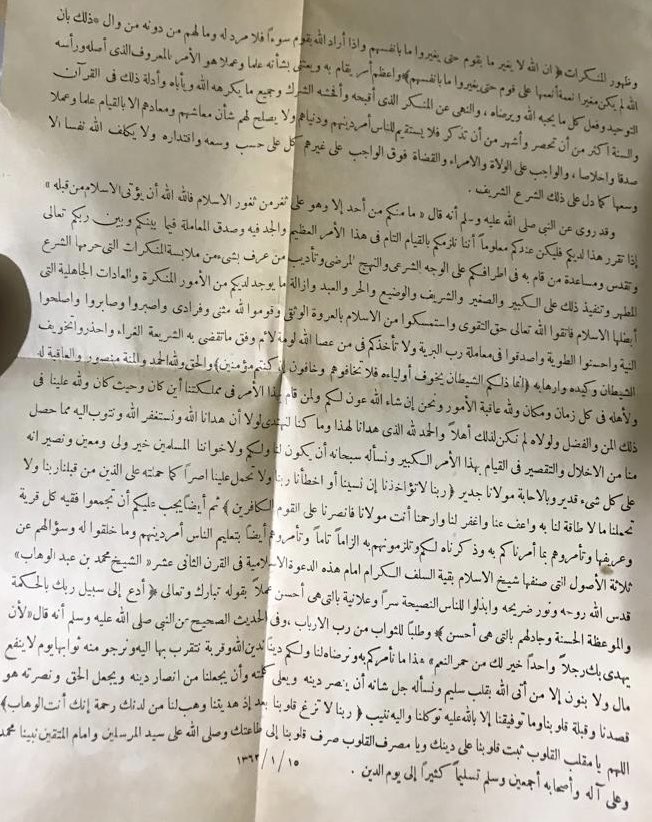 وظهور المنكرات ﴿ ان الله لا يغير ما بقوم حتى يغيروا ما بانفسهم واذا أراد الله بقوم سوءاً فلا مرد له وما لهم من دونه من وال ﴾ «ذلك بان
الله لم يكن مغيرا نعمة أنعمها على قوم حتى يغيروا ما بانفسهم» واعظم أمر يقام به ويعتنى بشأنه علما وعملا هو الأمر بالمعروف الذى أصله ورأسه
التوحيد وفعل كل ما يحبه الله ويرضاه ، والنهى عن المنكر الذى أقبحه وأخشه الشرك وجميع ما يكرهه الله ويأباه وأدلة ذلك فى القرآن
والسنة اكثر من أن تحصر وأشهر من أن تذكر فلا يستقيم للناس أمر دينهم ودنياهم ولا يصلح لهم شأن معاشهم ومعادهم الا بالقيام علما وعملا
صدقا واخلاصا ، والواجب على الولاة والامراء والقضاة فوق الواجب على غيرهم كل على حسب وسعه واقتداره ولا يكلف الله نفسا الا
وسعها كما دل على ذلك الشرع الشريف .
وقد روى عن النبى صلى الله عليه وسلم أنه قال « ما منكم من أحد إلا وهو على ثغر من ثغور الاسلام فالله الله أن يؤتى الاسلام من قبله »
إذا تقرر هذا لديكم فليكن عندكم معلوماً أننا نلزمكم بالقيام التام فى هذا الأمر العظيم والجد فيه وصدق المعاملة فيما بينكم وبين ربكم تعالى
وتقدس ومساعدة من قام به فى اطرافكم على الوجه الشرعى والنهج المرضى وتأديب من عرف بشىء من ملابسة المنكرات التى حرمها الشرع
المطهر وتنفيذ ذلك على الكبير والصغير والشريف والوضيع والحر والعبد وازالة ما يوجد لديكم من الأمور المنكرة والعادات الجاهلية التى
أبطلها الاسلام فاتقوا الله تعالى حق التقوى واستمسكوا من الاسلام بالعروة الوثقى وقوموا لله مثنى وفرادى واصبروا وصابروا واصلحوا
النية واحسنوا الطوية واصدقوا فى معاملة رب البرية ولا تأخذكم فى من عصا الله لومة لائم وفق ما تقضى به الشريعة الغراء واحذروا تخويف
الشيطان وكيده وارهابه ﴿ انما ذلكم الشيطان يخوف أولياءه فلا تخافوهم وخافون ان كنتم مؤمنين ﴾ والحق ولله الحمد والمنة منصور والعاقبة له
ولأهله فى كل زمان ومكان ولله عاقبة الأمور ونحن إن شاء الله عون لكم ولمن قام بهذا الأمر فى مملكتنا أين كان وحيث كان ولله علينا فى
ذلك المن والفضل ولولاه لم نكن لذلك أهلاً والحمد لله الذى هدانا لهذا وما كنا لنهتدى لولا أن هدانا الله ونستغفر الله ونتوب اليه مما حصل
منا من الاخلال والتقصير فى القيام بهذا الأمر الكبير ونسأله سبحانه أن يكون لنا ولكم ولاخواننا المسلمين خير ولى ومعين ونصير انه
على كل شىء قدير وبالاجابة مولانا جدير ﴿ ربنا لا تؤاخذنا إن نسينا أو اخطأنا ربنا ولا تحمل علينا اصراً كما حملته على الذين من قبلنا ربنا ولا
تحملنا ما لا طاقة لنا به واعف عنا واغفر لنا وارحمنا أنت مولانا فانصرنا على القوم الكافرين ﴾ ثم أيضاً يجب عليكم أن تجمعوا فقيه كل قرية
وعريفها وتأمروهم بما أمرناكم به وذكرناه لكم وتلزمونهم به الزاماً تاماً وتأمروهم أيضاً بتعليم الناس أمر دينهم وما خلقوا له وسؤالهم عن
ثلاثة الأصول التى صنفها شيخ الاسلام بقية السلف الكرام امام هذه الدعوة الاسلامية فى القرن الثانى عشر « الشيخ محمد بن عبد الوهاب »
قدس الله روحه ونور ضريحه وابذلوا للناس النصيحة سراً وعلانية بالتى هى أحسن عملاً بقوله تبارك وتعالى ﴿ أدع إلى سبيل ربك بالحكمة
والموعظة الحسنة وجادلهم بالتى هى أحسن ﴾ وطلباً للثواب من رب الارباب ، وفى الحديث الصحيح عن النبى صلى الله عليه وسلم أنه قال « لأن
يهدى بك رجلاً واحداً خير لك من حمر النعم » هذا ما نأمركم به ونرضاه لنا ولكم ديناً ندين الله وقربة نتقرب بها اليه ونرجو منه ثوابها يوم لا ينفع
مال ولا بنون إلا من أتى الله بقلب سليم ونسأله جل شأنه أن ينصر دينه ويعلى كلمته وأن يجعلنا من انصار دينه ويجعل الحق ونصرته هو
قصدنا وقبلة قلوبنا وما توفيقنا إلا بالله عليه توكلنا واليه ننيب ﴿ ربنا لا تزغ قلوبنا بعد إذ هديتنا وهب لنا من لدنك رحمة إنك أنت الوهاب ﴾
اللهم يا مقلب القلوب ثبت قلوبنا على دينك ويا مصرف القلوب صرف قلوبنا إلى طاعتك وصلى الله على سيد المرسلين وامام المتقين نبينا محمد
وعلى آله وأصحابه أجمعين وسلم تسليماً كثيراً إلى يوم الدين .
١٣٦٢/١/١٥